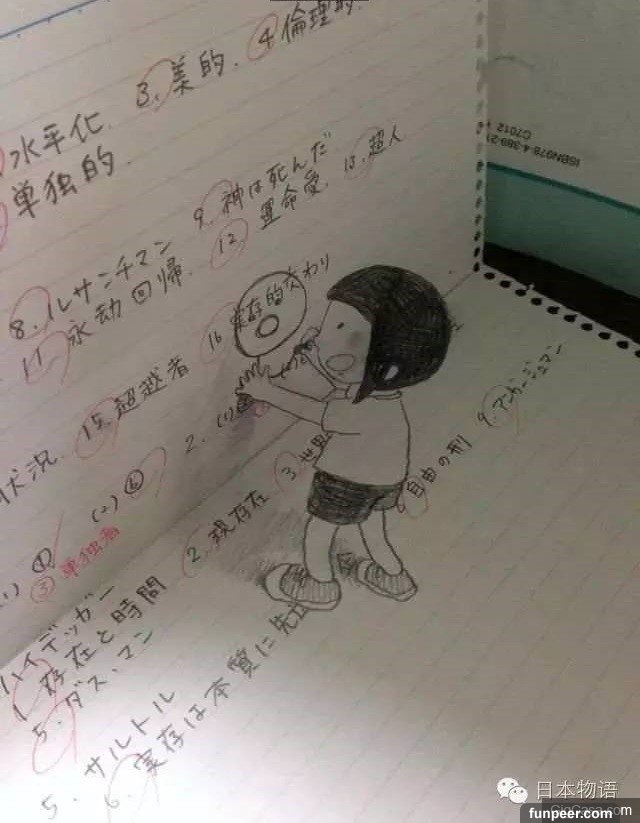 3. 美的. 4 倫理的.
水平化.
単独的.
8. ルサンチマン 9. 神は死んだ
11 永劫回帰. 12 運命愛. 13. 超人
状況. 15. 超越者 16 実存的交わり
(2) ④ 2.
③ 単独者
ハイデッガー
1. 存在と時間 2. 現存在 3.
5. ダス・マン
5. サルトル
6. 実存は本質に先立 自由の刑 9. アンガージュマン
ISBN978-4-389-21
C7012
日本物语
GigCasa.com
funpeer.com